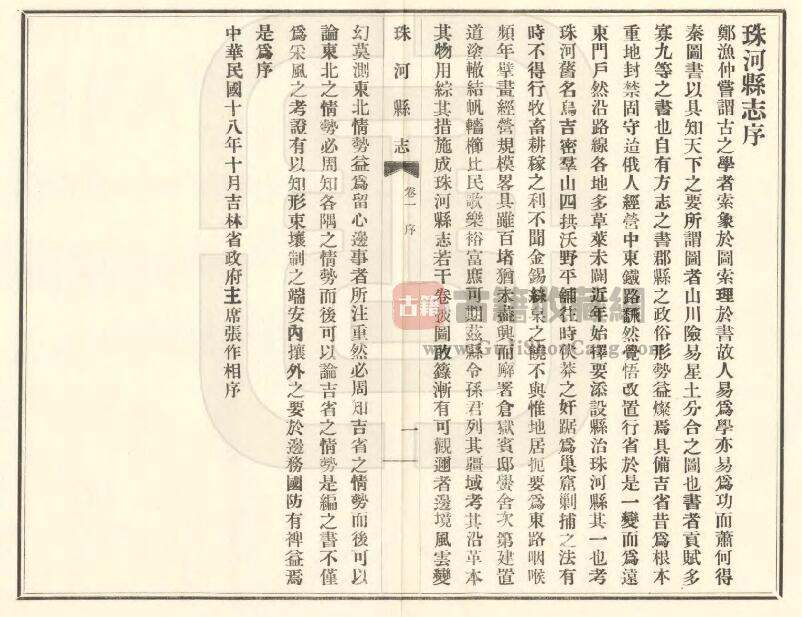 珠河縣志序
鄭漁仲嘗謂古之學者索象於圖索理於書故人易爲學亦易爲功而蕭何得
秦圖書以具知天下之要所謂圖者山川險易星土分合之圖也書者貢賦多
寡九等之書也自有方志之書郡縣之政俗形勢益燦焉具備吉省昔爲根本
重地封禁固守迨俄人經營中東鐵路翻然覺悟改置行省於是一變而爲遠
東門戶然沿路線各地多草萊未闢近年始擇要添設縣治珠河縣其一也考
珠河舊名烏吉密羣山四拱沃野平鋪往時伏莽之奸踞爲巢窟剿捕之法有
時不得行牧畜耕稼之利不聞金錫絲枲之饒不與惟地居扼要爲東路咽喉
頻年擘畫經營規模畧具雖百堵猶未盡興而廨署倉獄賓邸黌舍次第建置
道塗轍結帆檣櫛比民歌樂裕富庶可期茲縣令孫君列其疆域考其沿革本
其物用綜其措施成珠河縣志若干卷披圖啟籙漸有可觀邇者邊境風雲變
珠河縣志
卷一 序
一
幻莫測東北情勢益爲留心邊事者所注重然必周知吉省之情勢而後可以
論東北之情勢必周知各隅之情勢而後可以論吉省之情勢是編之書不僅
爲采風之考證有以知形束壤制之端安內攘外之要於邊務國防有裨益焉
是爲序
中華民國十八年十月吉林省政府主席張作相序
古籍
古籍收藏網
www.GuJiShouCang.com